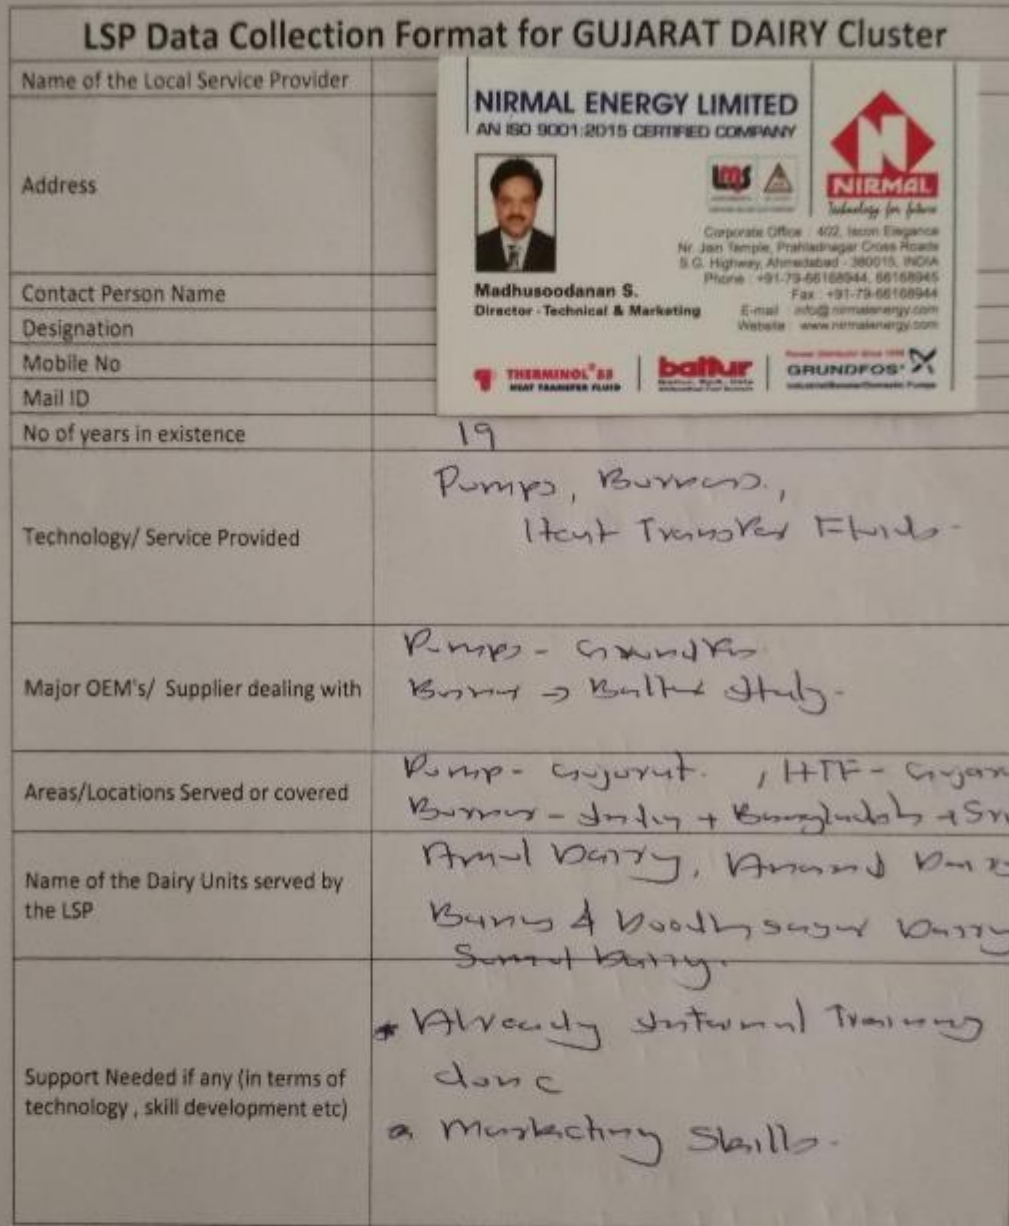 LSP Data Collection Format for GUJARAT DAIRY Cluster
Name of the Local Service Provider
NIRMAL ENERGY LIMITED
AN ISO 9001:2015 CERTIFIED COMPANY
N
NIRMAL
Technology for future
Address
Corporate Office : 402, Iscon Elegance
Nr. Jain Temple, Prahladnagar Cross Roads
S.G. Highway, Ahmedabad - 380015, INDIA
Phone : +91-79-66168944, 66168945
Fax : +91-79-66168944
E-mail : info@nirmalenergy.com
Website : www.nirmalenergy.com
Madhusoodanan S.
Director - Technical & Marketing
THERMINOL® 55
HEAT TRANSFER FLUID
baltur
GRUNDFOS
Contact Person Name
Designation
Mobile No
Mail ID
No of years in existence
19
Technology/ Service Provided
Pumps, Burners,
Heat Transfer Fluids -
Major OEM's/ Supplier dealing with
Pumps - Grundfos
Burner → Baltur Italy -
Areas/Locations Served or covered
Pump - Gujarat. , HTF - Gujar
Burner - India + Bangladesh + Sri
Name of the Dairy Units served by
the LSP
Amul Dairy, Anand
Doodhsagar Dairy
Sumul Dairy.
Support Needed if any (in terms of
technology , skill development etc)
* Already Internal Training
done
Marketing Skills.